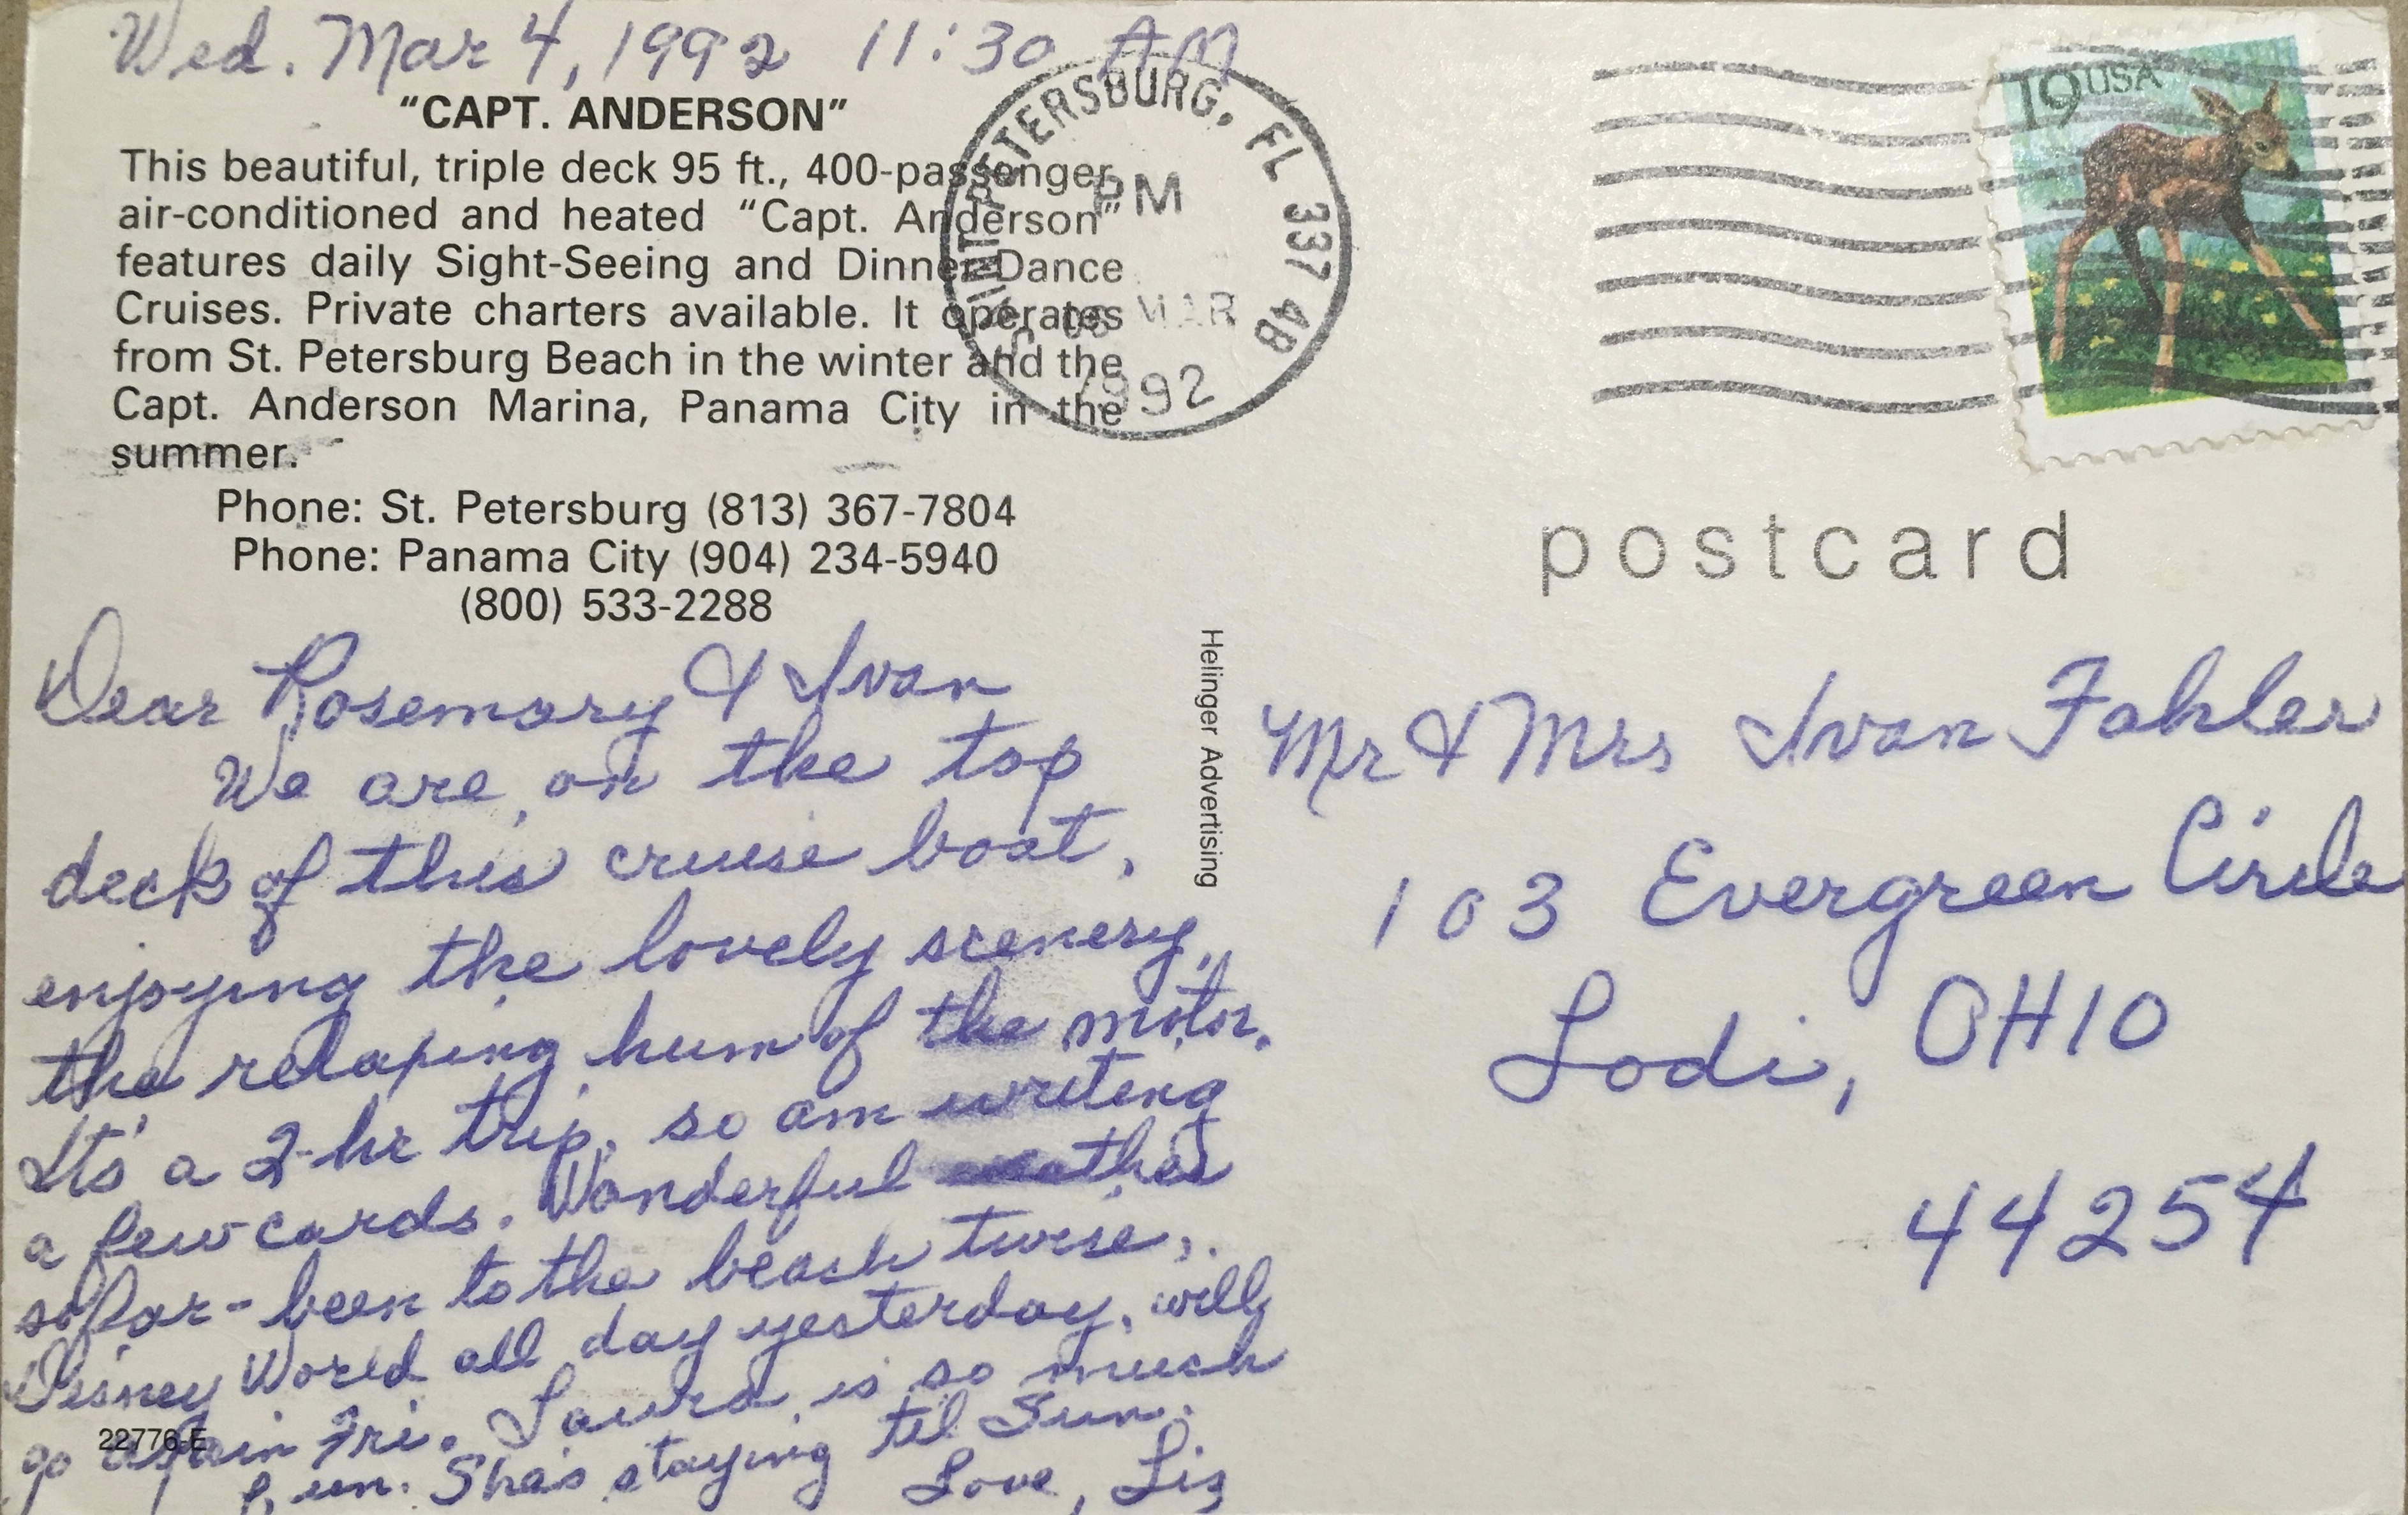 Wed. Mar 4, 1992 11:30 AM
"CAPT. ANDERSON"
This beautiful, triple deck 95 ft., 400-passenger
air-conditioned and heated "Capt. Anderson"
features daily Sight-Seeing and Dinner Dance
Cruises. Private charters available. It operates
from St. Petersburg Beach in the winter and the
Capt. Anderson Marina, Panama City in the
summer.
Phone: St. Petersburg (813) 367-7804
Phone: Panama City (904) 234-5940
(800) 533-2288
Dear Rosemary & Ivan
We are on the top
deck of this cruise boat,
enjoying the lovely scenery,
the relaxing hum of the motor.
It's a 2-hr trip, so am writing
a few cards. Wonderful weather
so far - been to the beach twice,
Disney World all day yesterday, will
go again Fri. Laura is so much
fun. She's staying til Sun.
Love, Liz
22776-E
Helinger Advertising
SAINT PETERSBURG, FL 337 4B
PM
MAR
1992
19 USA
postcard
Mr & Mrs Ivan Fahler
103 Evergreen Circle
Lodi, OHIO
44254